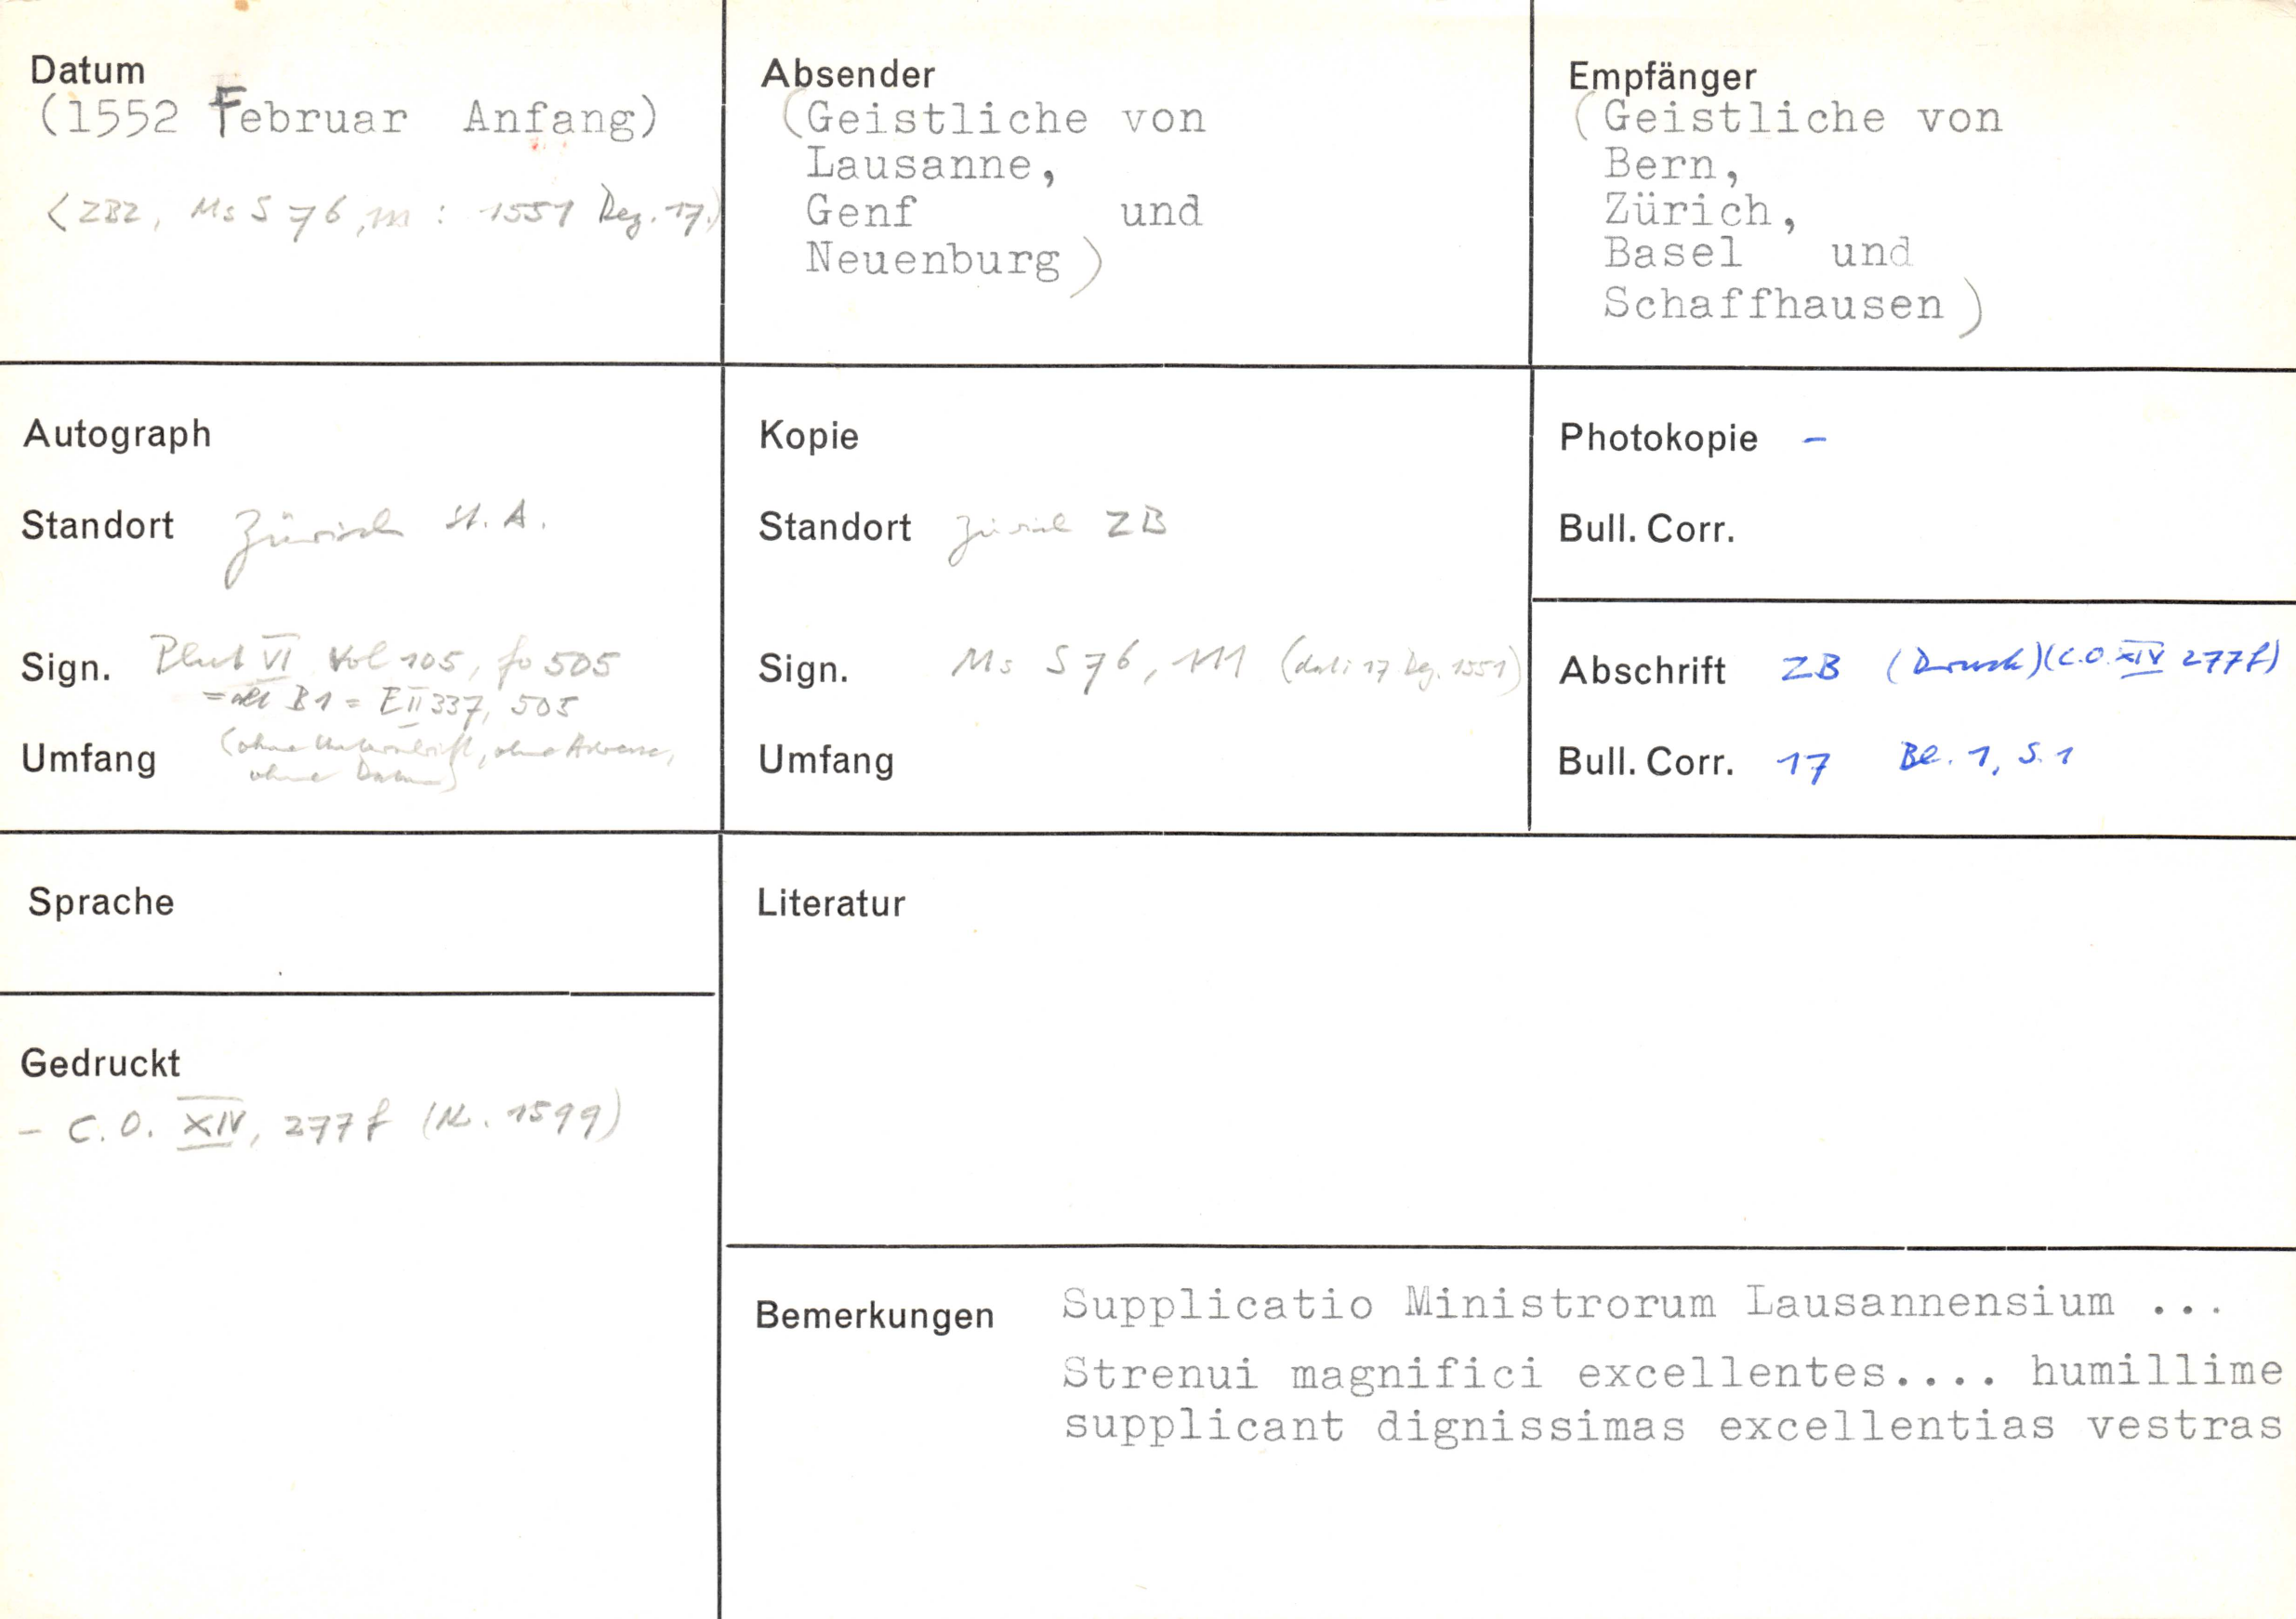 Datum
(1552 Februar Anfang)
(ZBZ, Ms S 76, 111 : 1551 Dez. 17.)
Absender
(Geistliche von
Lausanne,
Genf und
Neuenburg)
Empfänger
(Geistliche von
Bern,
Zürich,
Basel und
Schaffhausen)
Autograph
Standort Zürich St. A.
Sign. Plut VI Vol 105, fo 505
= alt B1 = E II 337, 505
Umfang (ohne Unterschrift, ohne Adresse,
ohne Datum)
Kopie
Standort Zürich ZB
Sign. Ms S 76, 111 (dat: 17 Dez. 1551)
Umfang
Photokopie -
Bull. Corr.
Abschrift ZB (Druck) (C.O. XIV 277f)
Bull. Corr. 17 Bl. 1, S. 1
Sprache
Gedruckt
- C.O. XIV, 277f (Nr. 1599)
Literatur
Bemerkungen Supplicatio Ministrorum Lausannensium ...
Strenui magnifici excellentes.... humillime
supplicant dignissimas excellentias vestras